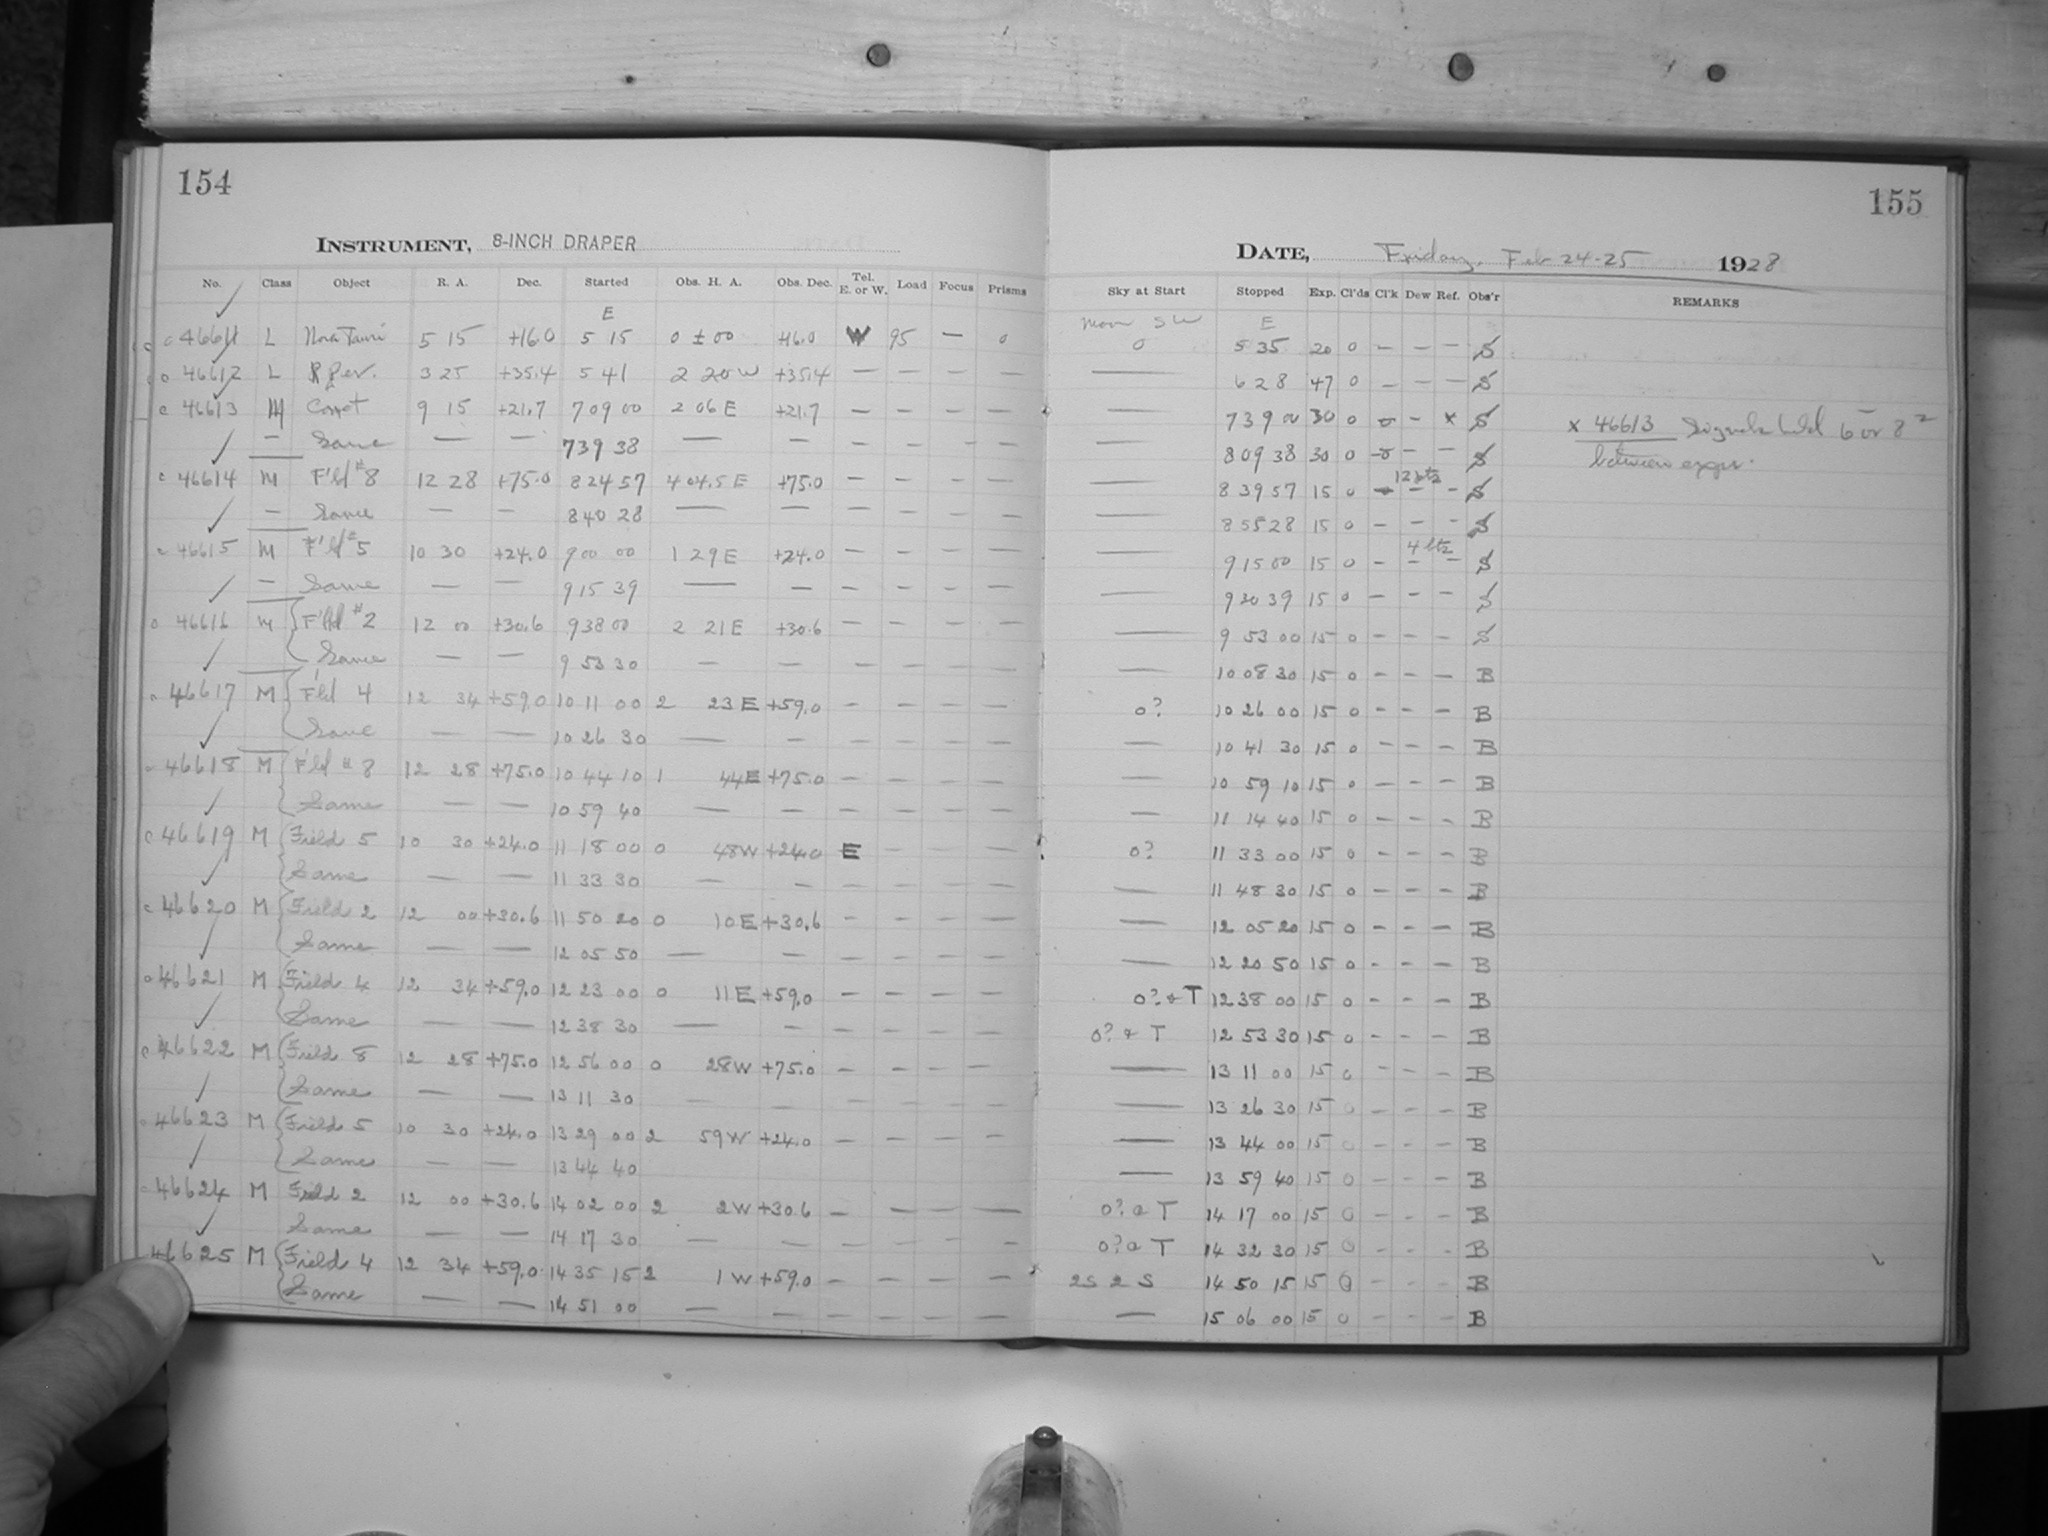 154
INSTRUMENT, 8-INCH DRAPER
No. Class Object R. A. Dec. Started Obs. H. A. Obs. Dec. Tel. E. or W. Load Focus Prisms
E
46611 L Nova Tauri 5 15 +16.0 5 15 0 ± 00 +16.0 W 95 — 0
46612 L R Per. 3 25 +35.4 5 41 2 20 W +35.4 — — — —
46613 M 9 15 +21.7 7 09 00 2 06 E +21.7 — — — —
— Same — — 7 39 38 — — — — — —
46614 M F'ld #8 12 28 +75.0 8 24 57 4 04.5 E +75.0 — — — —
— Same — — 8 40 28 — — — — — —
46615 M F'ld #5 10 30 +24.0 9 00 00 1 29 E +24.0 — — — —
— Same — — 9 15 39 — — — — — —
46616 M F'ld #2 12 00 +30.6 9 38 00 2 21 E +30.6 — — — —
Same — — 9 53 30 — — — — — —
46617 M F'ld 4 12 34 +59.0 10 11 00 2 23 E +59.0 — — — —
Same — — 10 26 30 — — — — — —
46618 M F'ld #8 12 28 +75.0 10 44 10 1 44 E +75.0 — — — —
Same — — 10 59 40 — — — — — —
46619 M Field 5 10 30 +24.0 11 18 00 0 48 W +24.0 E — — —
Same — — 11 33 30 — — — — — —
46620 M Field 2 12 00 +30.6 11 50 20 0 10 E +30.6 — — — —
Same — — 12 05 50 — — — — — —
46621 M Field 4 12 34 +59.0 12 23 00 0 11 E +59.0 — — — —
Same — — 12 38 30 — — — — — —
46622 M Field 8 12 28 +75.0 12 56 00 0 28 W +75.0 — — — —
Same — — 13 11 30 — — — — — —
46623 M Field 5 10 30 +24.0 13 29 00 2 59 W +24.0 — — — —
Same — — 13 44 40
46624 M Field 2 12 00 +30.6 14 02 00 2 2 W +30.6 — — — —
Same — — 14 17 30 — — — — — —
46625 M Field 4 12 34 +59.0 14 35 15 2 1 W +59.0 — — — —
Same — — 14 51 00 — — — — — —
155
DATE, Friday, Feb 24-25 1928
Sky at Start Stopped Exp. Cl'ds Cl'k Dew Ref. Obs'r REMARKS
Moon SW E
0 5 35 20 0 — — — S
— 6 28 47 0 — — — S
— 7 39 00 30 0 0 — x S x 46613 Signals held 6 or 8
— 8 09 38 30 0 0 — — S between expos.
— 8 39 57 15 0 — — — S
— 8 55 28 15 0 — — — S
— 9 15 00 15 0 — — — S
— 9 30 39 15 0 — — — S
— 9 53 00 15 0 — — — S
— 10 08 30 15 0 — — — B
0? 10 26 00 15 0 — — — B
— 10 41 30 15 0 — — — B
— 10 59 10 15 0 — — — B
— 11 14 40 15 0 — — — B
0? 11 33 00 15 0 — — — B
— 11 48 30 15 0 — — — B
— 12 05 20 15 0 — — — B
— 12 20 50 15 0 — — — B
0? & T 12 38 00 15 0 — — — B
0? & T 12 53 30 15 0 — — — B
— 13 11 00 15 0 — — — B
— 13 26 30 15 0 — — — B
— 13 44 00 15 0 — — — B
— 13 59 40 15 0 — — — B
0? & T 14 17 00 15 0 — — — B
0? & T 14 32 30 15 0 — — — B
2S 2 S 14 50 15 15 0 — — — B
— 15 06 00 15 0 — — — B